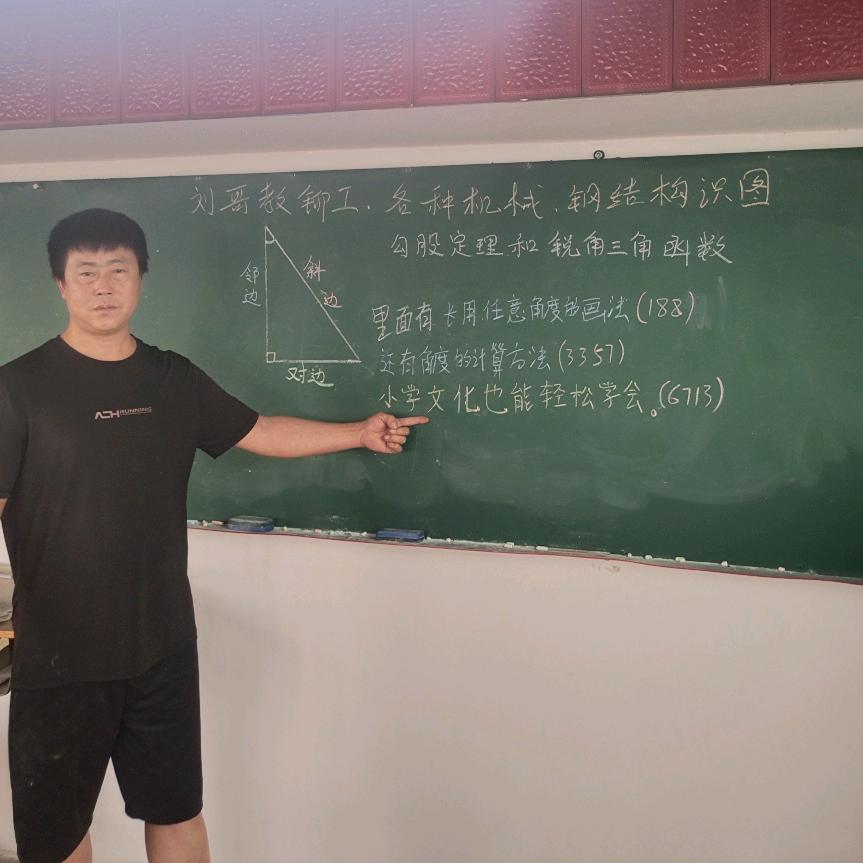 刘哥教铆工、各种机械、钢结构识图
勾股定理和锐角三角函数
邻边
斜边
对边
里面有 长用任意角度的画法(188)
还有角度的计算方法(3357)
小学文化也能轻松学会。(6713)
RUNNING